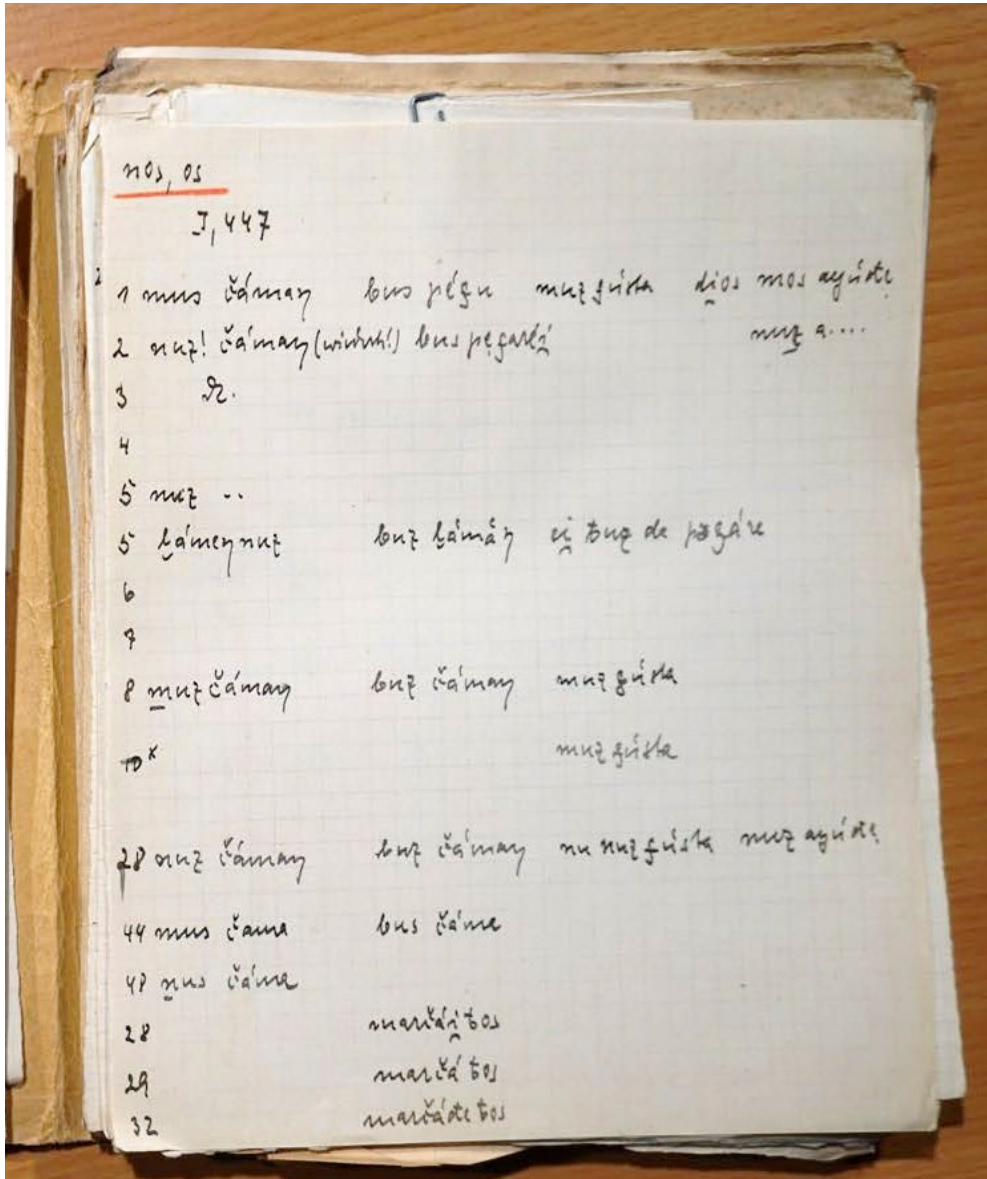 nos, os
I, 447
1 mus čámaŋ bus pégu muz gústa di̯os mos ayúdẹ
2 nuz! čámaŋ (wiederh.!) bus pẹgaréi̯ muz a....
3 Dz.
4
5 nuz ..
5 l̬ámeŋnuz buz l̬ámáŋ ei̯ ƀuz de pegáre
6
7
8 muz čámaŋ buz čámaŋ muz gústa
10ˣ muz gústa
28 nuz čámaŋ buz čámaŋ nu nuz gústa nuz ayúdẹ
44 mus čama bus čáma
48 nus čáma
28 marčái̯ ƀos
29 marčá ƀos
32 marčáde ƀos